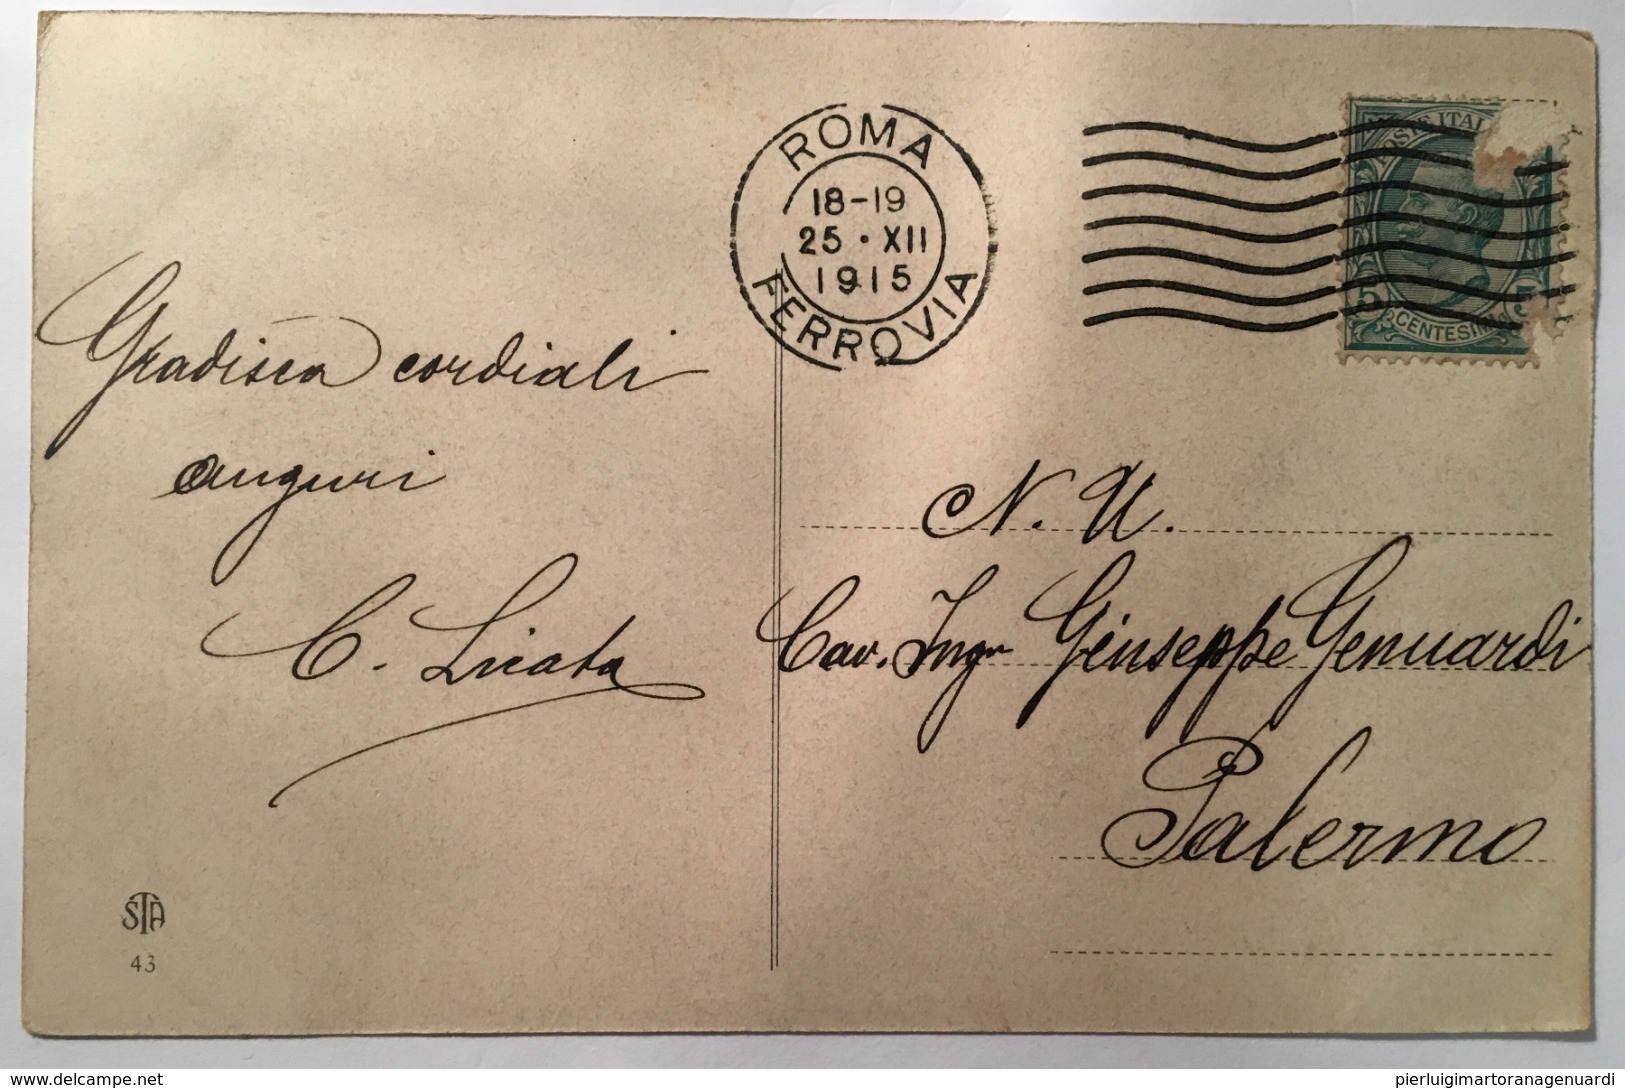 ROMA
18-19
25 · XII
1915
FERROVIA
POSTE ITAL
5 CENTESIMI 5
Gradisca cordiali
auguri
C. Licata
N. U.
Cav. Ingr Giuseppe Genuardi
Palermo
STA
43
delcampe.net
pierluigimartoranagenuardi